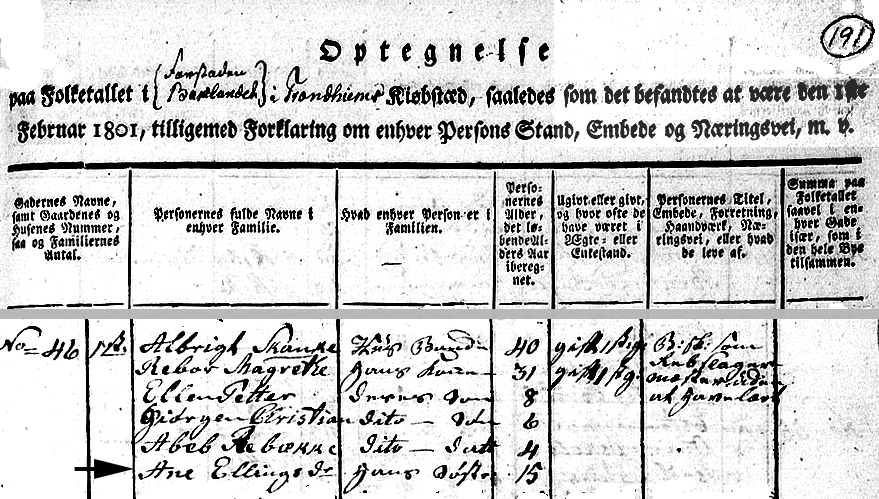 191
Optegnelse
paa Folketallet i {Forstaden Baklandet} i Trondhiems Kiøbstæd, saaledes som det befandtes at være den 1ste
Februar 1801, tilligemed Forklaring om enhver Persons Stand, Embede og Næringsvei, m. v.
Gadernes Navne,
samt Gaardenes og
Husenes Nummer,
saa og Familiernes
Antal.
Personernes fulde Navne i
enhver Familie.
Hvad enhver Person er i
Familien.
Perso-
nernes
Alder,
det lø-
bende Al-
ders Aar
ibereg-
net.
Ugivt eller givt,
og hvor ofte de
have været i
Ægte- eller
Enkestand.
Personernes Titel,
Embede, Forretning,
Haandværk, Næ-
ringsvei, eller hvad
de leve af.
Summa paa
Folketallet
saavel i en-
hver Gade
især, som i
den hele Bye
tilsammen.
No 46 Albrigt Skanke Huus Bonde 40 gift 1ste g.
Rebor Magrethe Hans Kone 31 gift 1ste g.
Ellen Petter deres Søn 8
Giørgen Christian dito — Søn 6
Abeb Rebække dito — datt 4
Ane Ellingsdr Hans Søster 15